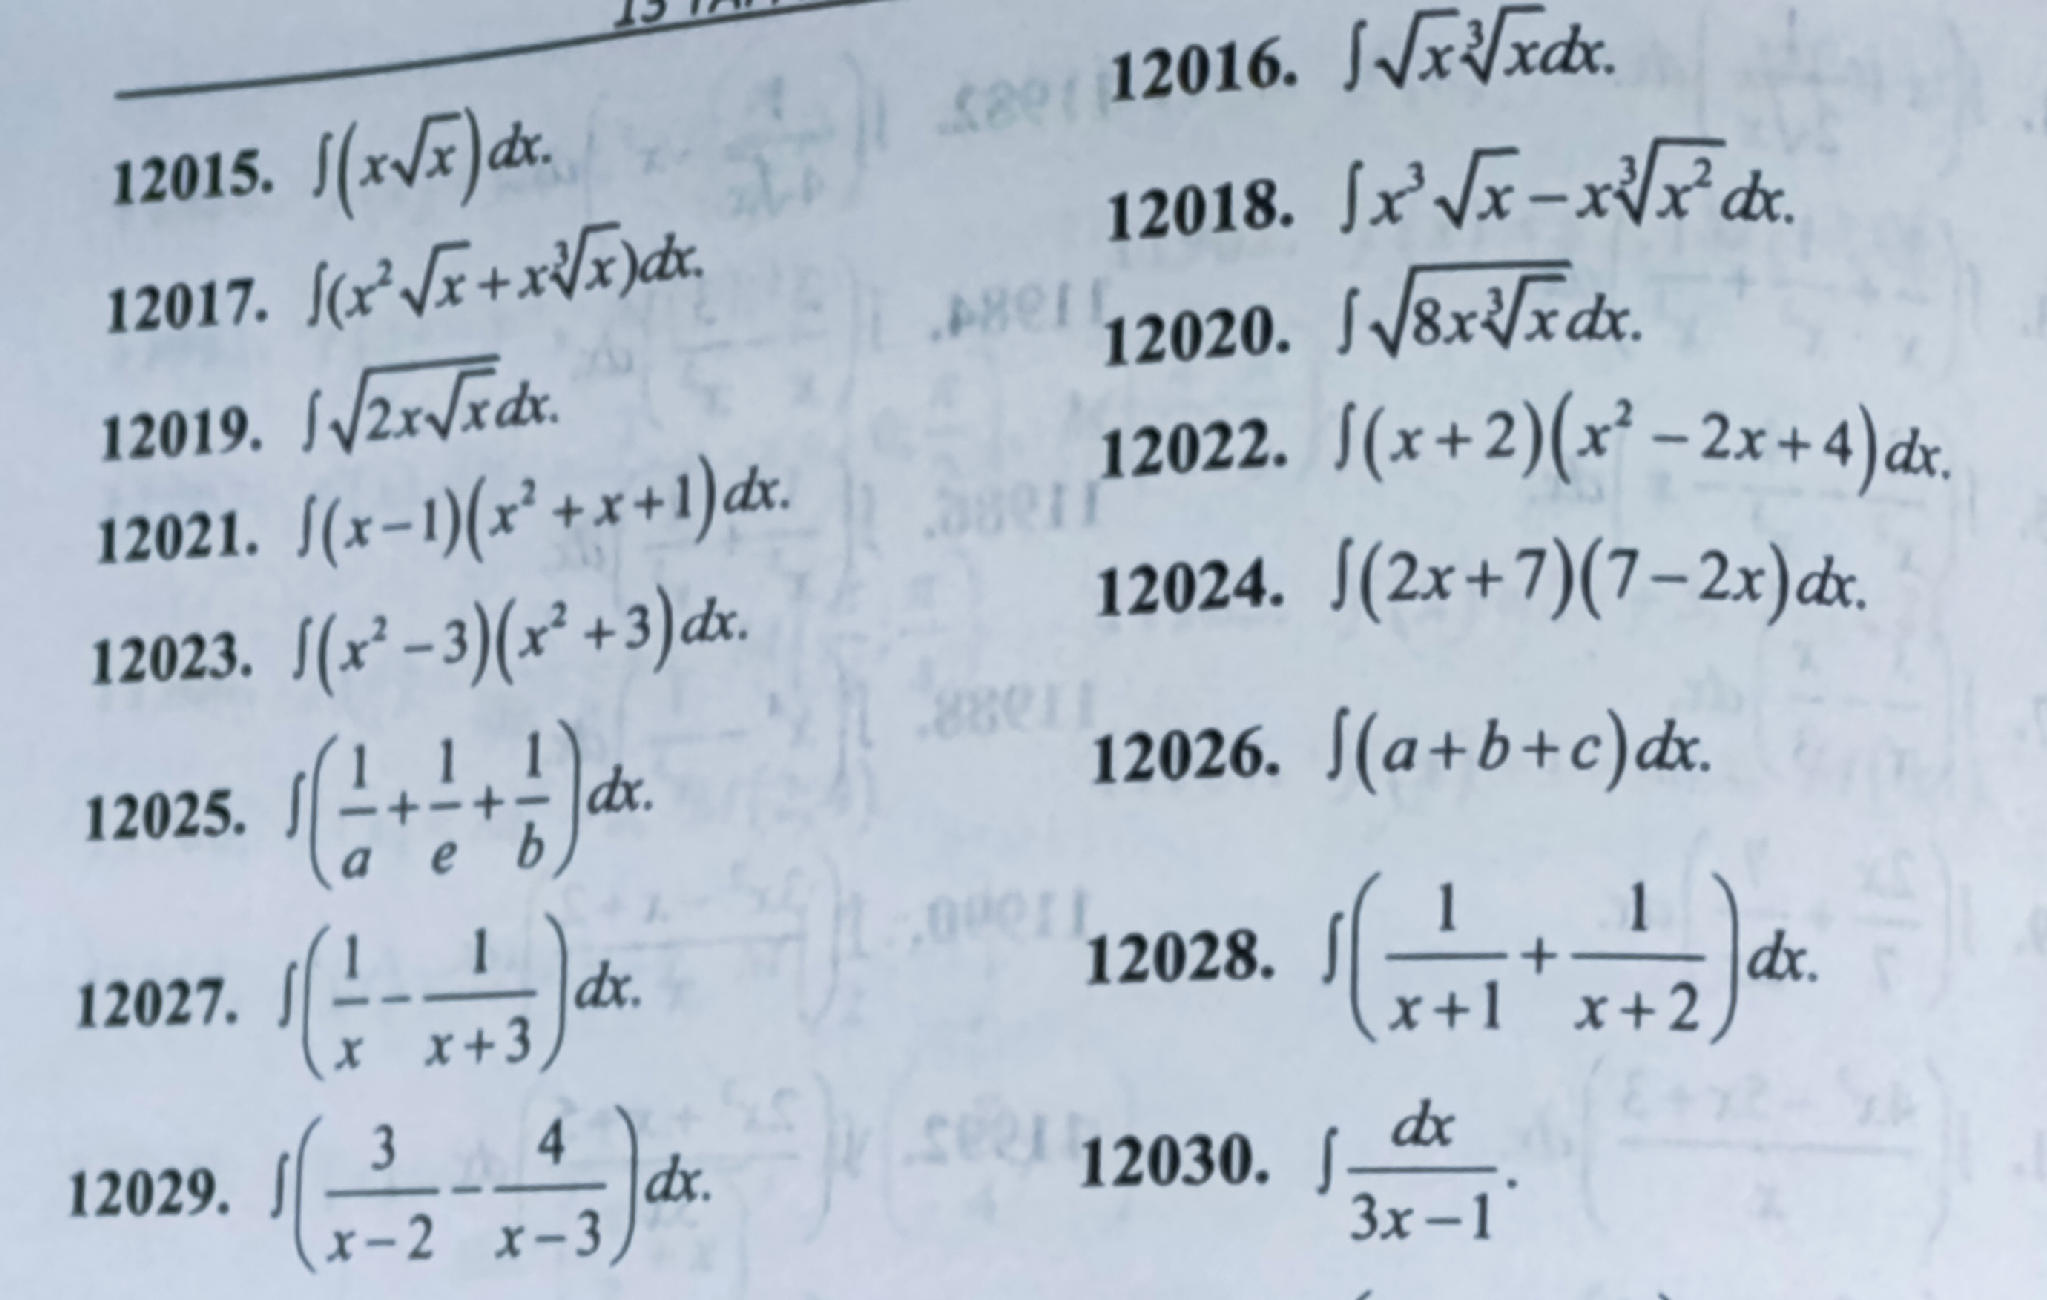 12015. ∫(x√x)dx.
12016. ∫√x∛xdx.
12017. ∫(x²√x+x∛x)dx.
12018. ∫x³√x−x∛x²dx.
12019. ∫√(2x√x)dx.
12020. ∫√(8x∛x)dx.
12021. ∫(x−1)(x²+x+1)dx.
12022. ∫(x+2)(x²−2x+4)dx.
12023. ∫(x²−3)(x²+3)dx.
12024. ∫(2x+7)(7−2x)dx.
12025. ∫(1/a+1/e+1/b)dx.
12026. ∫(a+b+c)dx.
12027. ∫(1/x−1/(x+3))dx.
12028. ∫(1/(x+1)+1/(x+2))dx.
12029. ∫(3/(x−2)−4/(x−3))dx.
12030. ∫dx/(3x−1).